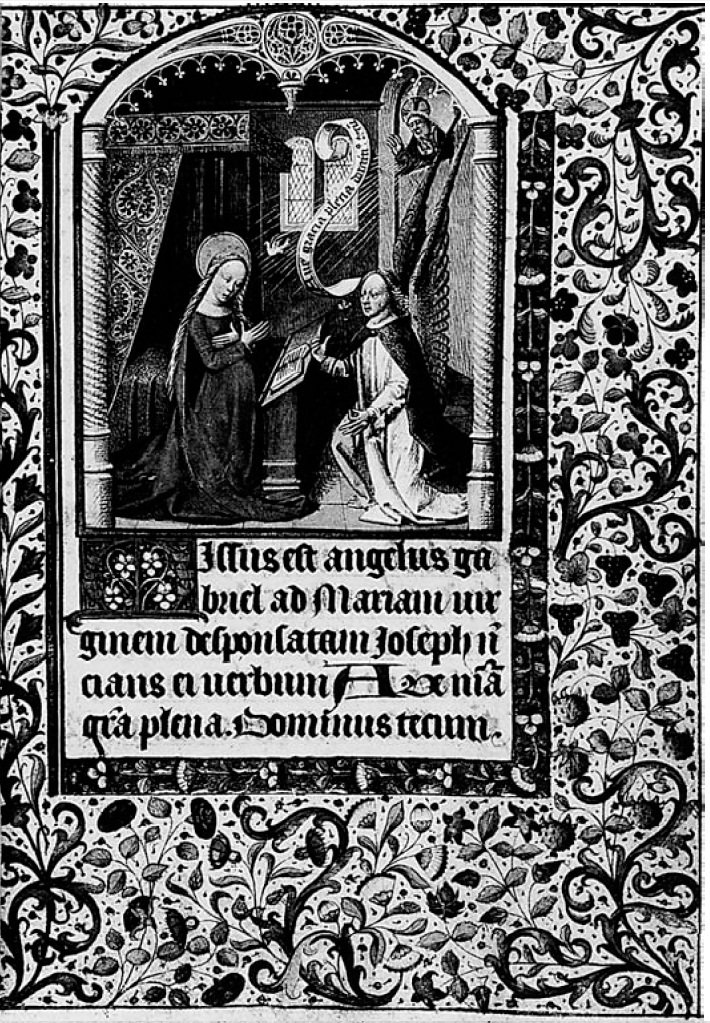 Aue gracia plena
MIssus est angelus ga
briel ad Mariam uir
ginem desponsatam Joseph nū
cians ei uerbum Aue m̄ia
gr̄a plena. Dominus tecum.